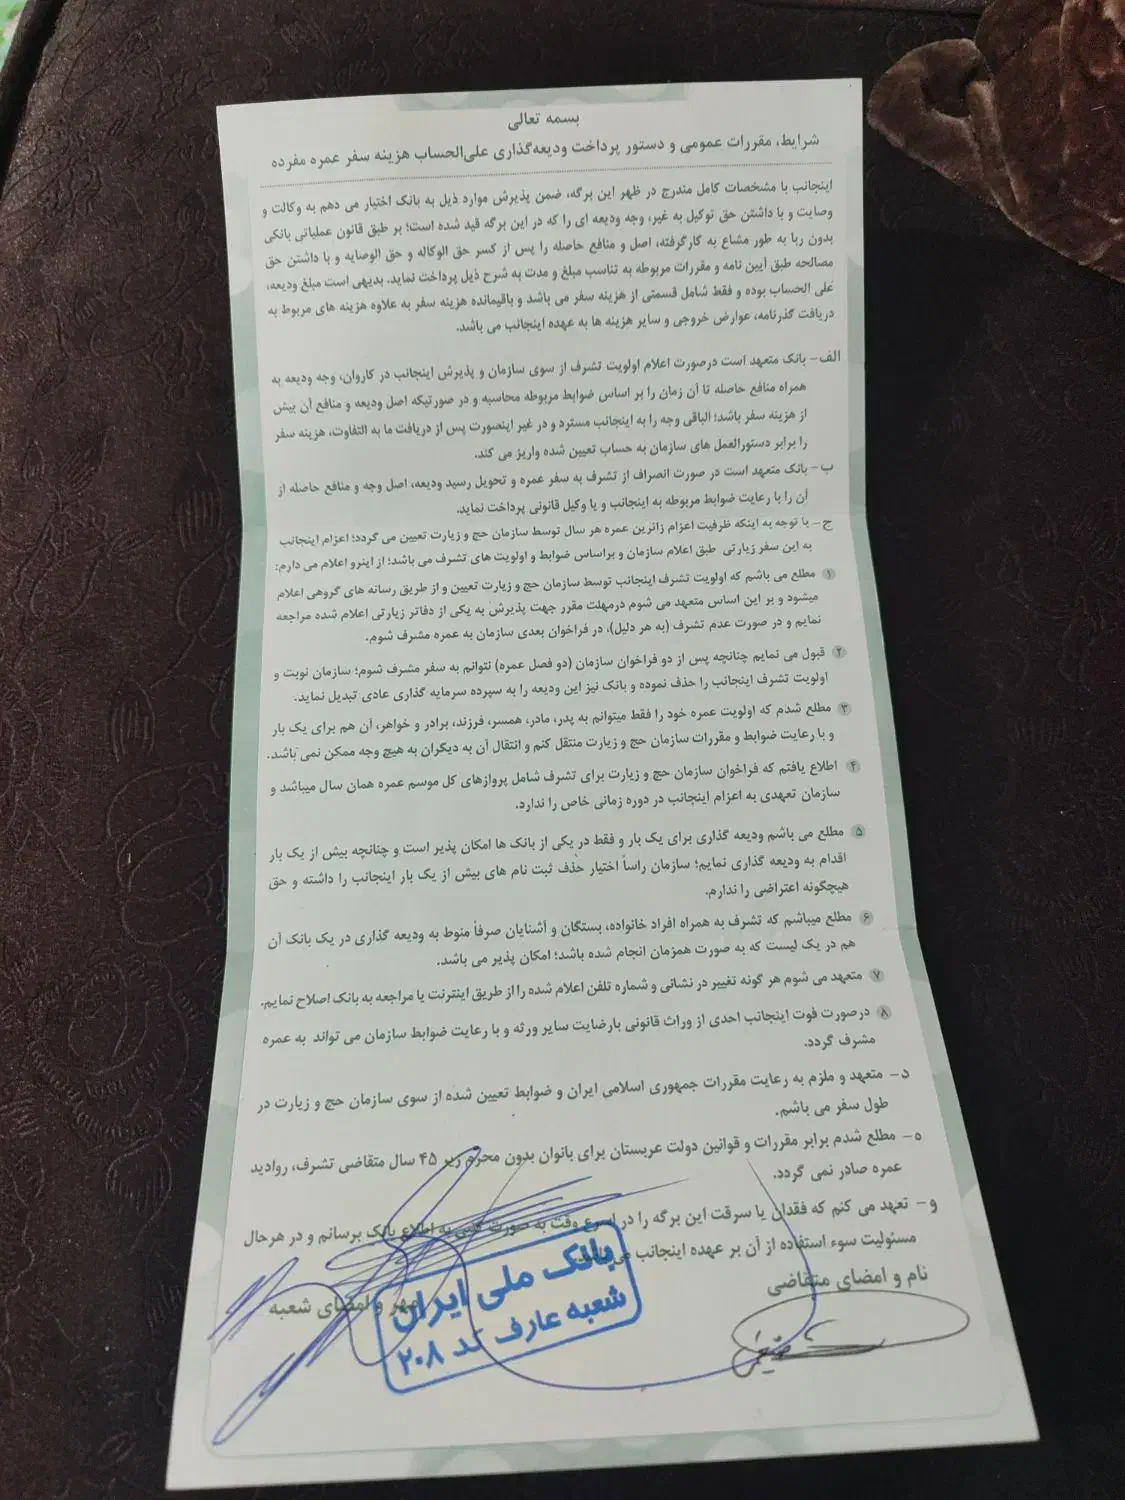 بسمه تعالی
شرایط، مقررات عمومی و دستور پرداخت ودیعه‌گذاری علی‌الحساب هزینه سفر عمره مفرده
اینجانب با مشخصات کامل مندرج در ظهر این برگه، ضمن پذیرش موارد ذیل به بانک اختیار می دهم به وکالت و
وصایت و با داشتن حق توکیل به غیر، وجه ودیعه ای را که در این برگه قید شده است؛ بر طبق قانون عملیاتی بانکی
بدون ربا به طور مشاع به کارگرفته، اصل و منافع حاصله را پس از کسر حق الوکاله و حق الوصایه و با داشتن حق
مصالحه طبق آیین نامه و مقررات مربوطه به تناسب مبلغ و مدت به شرح ذیل پرداخت نماید. بدیهی است مبلغ ودیعه،
علی الحساب بوده و فقط شامل قسمتی از هزینه سفر می باشد و باقیمانده هزینه سفر به علاوه هزینه های مربوط به
دریافت گذرنامه، عوارض خروجی و سایر هزینه ها به عهده اینجانب می باشد.
الف- بانک متعهد است درصورت اعلام اولویت تشرف از سوی سازمان و پذیرش اینجانب در کاروان، وجه ودیعه به
همراه منافع حاصله تا آن زمان را بر اساس ضوابط مربوطه محاسبه و در صورتیکه اصل ودیعه و منافع آن بیش
از هزینه سفر باشد؛ الباقی وجه را به اینجانب مسترد و در غیر اینصورت پس از دریافت ما به التفاوت، هزینه سفر
را برابر دستورالعمل های سازمان به حساب تعیین شده واریز می کند.
ب- بانک متعهد است در صورت انصراف از تشرف به سفر عمره و تحویل رسید ودیعه، اصل وجه و منافع حاصله از
آن را با رعایت ضوابط مربوطه به اینجانب و یا وکیل قانونی پرداخت نماید.
ج- با توجه به اینکه ظرفیت اعزام زائرین عمره هر سال توسط سازمان حج و زیارت تعیین می گردد؛ اعزام اینجانب
به این سفر زیارتی طبق اعلام سازمان و براساس ضوابط و اولویت های تشرف می باشد؛ از اینرو اعلام می دارم:
۱ مطلع می باشم که اولویت تشرف اینجانب توسط سازمان حج و زیارت تعیین و از طریق رسانه های گروهی اعلام
میشود و بر این اساس متعهد می شوم درمهلت مقرر جهت پذیرش به یکی از دفاتر زیارتی اعلام شده مراجعه
نمایم و در صورت عدم تشرف (به هر دلیل)، در فراخوان بعدی سازمان به عمره مشرف شوم.
۲ قبول می نمایم چنانچه پس از دو فراخوان سازمان (دو فصل عمره) نتوانم به سفر مشرف شوم؛ سازمان نوبت و
اولویت تشرف اینجانب را حذف نموده و بانک نیز این ودیعه را به سپرده سرمایه گذاری عادی تبدیل نماید.
۳ مطلع شدم که اولویت عمره خود را فقط میتوانم به پدر، مادر، همسر، فرزند، برادر و خواهر، آن هم برای یک بار
و با رعایت ضوابط و مقررات سازمان حج و زیارت منتقل کنم و انتقال آن به دیگران به هیچ وجه ممکن نمی باشد.
۴ اطلاع یافتم که فراخوان سازمان حج و زیارت برای تشرف شامل پروازهای کل موسم عمره همان سال میباشد و
سازمان تعهدی به اعزام اینجانب در دوره زمانی خاص را ندارد.
۵ مطلع می باشم ودیعه گذاری برای یک بار و فقط در یکی از بانک ها امکان پذیر است و چنانچه بیش از یک بار
اقدام به ودیعه گذاری نمایم؛ سازمان راساً اختیار حذف ثبت نام های بیش از یک بار اینجانب را داشته و حق
هیچگونه اعتراضی را ندارم.
۶ مطلع میباشم که تشرف به همراه افراد خانواده، بستگان و آشنایان صرفاً منوط به ودیعه گذاری در یک بانک آن
هم در یک لیست که به صورت همزمان انجام شده باشد؛ امکان پذیر می باشد.
۷ متعهد می شوم هر گونه تغییر در نشانی و شماره تلفن اعلام شده را از طریق اینترنت یا مراجعه به بانک اصلاح نمایم.
۸ درصورت فوت اینجانب احدی از وراث قانونی بارضایت سایر ورثه و با رعایت ضوابط سازمان می تواند به عمره
مشرف گردد.
د- متعهد و ملزم به رعایت مقررات جمهوری اسلامی ایران و ضوابط تعیین شده از سوی سازمان حج و زیارت در
طول سفر می باشم.
ه- مطلع شدم برابر مقررات و قوانین دولت عربستان برای بانوان بدون محرم زیر ۴۵ سال متقاضی تشرف، روادید
عمره صادر نمی گردد.
و- تعهد می کنم که فقدان یا سرقت این برگه را در اسرع وقت به صورت کتبی به اطلاع بانک برسانم و در هرحال
مسئولیت سوء استفاده از آن بر عهده اینجانب می باشد.
نام و امضای متقاضی
مهر و امضای شعبه
بانک ملی ایران
شعبه عارف کد ۲۰۸